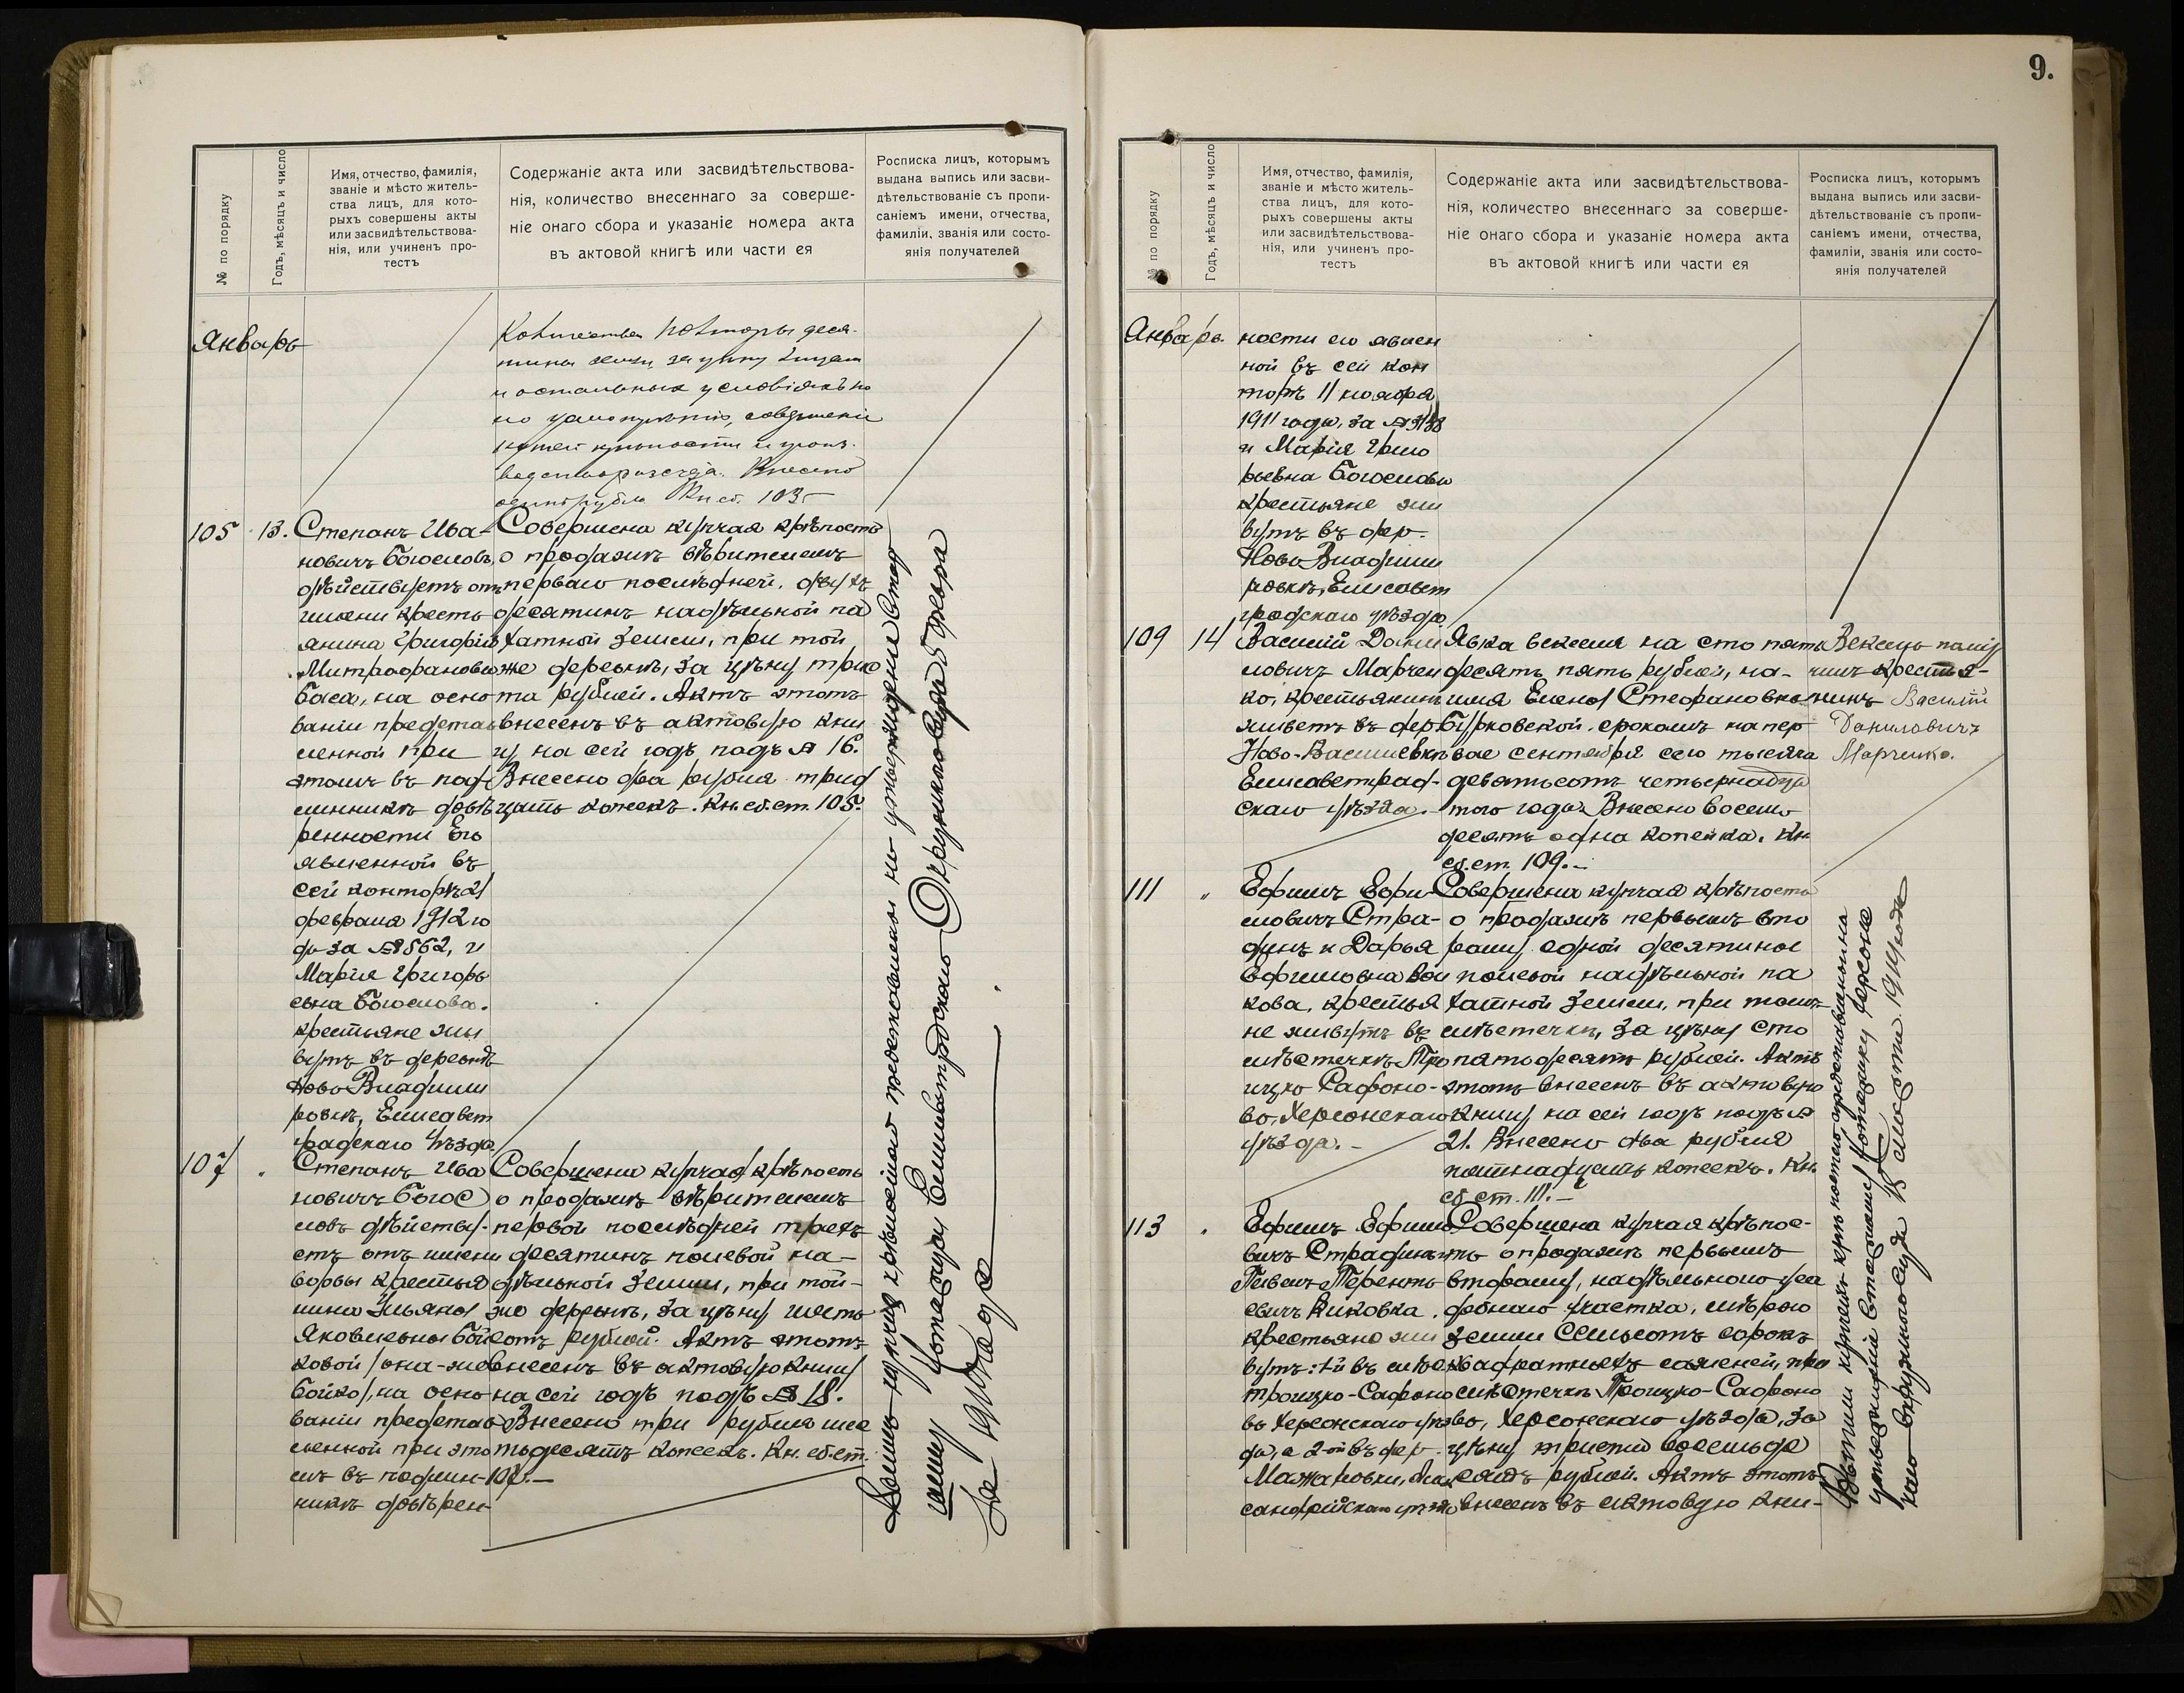 9.
№ по порядку
Годъ, мѣсяцъ и число
Имя, отчество, фамилія,
званіе и мѣсто житель-
ства лицъ, для кото-
рыхъ совершены акты
или засвидѣтельствова-
нія, или учиненъ про-
тестъ
Содержаніе акта или засвидѣтельствова-
нія, количество внесеннаго за соверше-
ніе онаго сбора и указаніе номера акта
въ актовой книгѣ или части ея
Росписка лицъ, которымъ
выдана выпись или засви-
дѣтельствованіе съ пропи-
саніемъ имени, отчества,
фамиліи, званія или состо-
янія получателей
Январь
полторы деся-
тины земли за цѣну
и остальных условіяхъ по
совершеніи
купчей крѣпости и
Внесено
одинъ рубль Кн. сб. 103-
105
13.
Степанъ Ива-
новичъ Богословъ,
дѣйствуетъ отъ
имени кресть
янина Григорія
Митрофанова
баса, на осно
ваніи представ
ленной при
этомъ въ под
линникѣ довѣ
ренности его
явленной въ
сей конторѣ 21
февраля 1912 го
да за № 562, и
Марія Григорь
евна Богослова.
крестьяне жи
вутъ въ деревнѣ
Ново Владими
ровкѣ, Елисавет
градскаго уѣзда
Совершена купчая крѣпость
о продажѣ вѣрителемъ
перваго послѣдней, двухъ
десятинъ надѣльной па
хатной земли, при той
же деревнѣ, за цѣну трис
та рублей. Актъ этотъ
внесенъ въ актовую кни
гу на сей годъ подъ № 16.
Внесено два рубля трид
цать копеекъ. Кн. сб. ст. 105.
107
Степанъ Ива
новичъ Богос
ловъ дѣйству-
етъ отъ имени
вдовы крестья
нина Ульяны
Яковлевны Бой
ковой /она-же
Бойко/, на осно
ваніи представ
ленной при это
мъ въ подлин-
никѣ довѣрен-
Совершена купчая крѣпость
о продажѣ вѣрителемъ
первой послѣдней трехъ
десятинъ полевой на-
дѣльной земли, при той-
же деревнѣ, за цѣну шесть
сотъ рублей. Актъ этотъ
внесенъ въ актовую книгу
на сей годъ подъ № 18.
Внесено три рубля шес
тьдесятъ копеекъ. Кн. сб. ст.
107.-
купчія крѣпости представлены на утвержденіе Стар
шему Нотаріусу Елисаветградскаго Окружнаго Суда 5 февра
ля 1914 года.
№ по порядку
Годъ, мѣсяцъ и число
Имя, отчество, фамилія,
званіе и мѣсто житель-
ства лицъ, для кото-
рыхъ совершены акты
или засвидѣтельствова-
нія, или учиненъ про-
тестъ
Содержаніе акта или засвидѣтельствова-
нія, количество внесеннаго за соверше-
ніе онаго сбора и указаніе номера акта
въ актовой книгѣ или части ея
Росписка лицъ, которымъ
выдана выпись или засви-
дѣтельствованіе съ пропи-
саніемъ имени, отчества,
фамиліи, званія или состо-
янія получателей
Январь
ности его явлен
ной въ сей кон
торѣ 11 ноября
1911 года, за
и Марія Григо
рьевна Богослова
крестьяне жи
вутъ въ дер.
Ново Владими
ровкѣ, Елисавет
градскаго уѣзда
109
14
Василій Дани
ловичъ Марчен
ко, крестьянинъ
живетъ въ дер.
Ново-Васильевкѣ
Елисаветград-
скаго уѣзда.
Явка векселя на сто пять
десятъ пять рублей, на-
имя Елены Стефановны
Бурковской, срокомъ на пер
вое сентября сего тысяча
девятьсотъ четырнадца
таго года. Внесено восемь
десятъ одна копейка. Кн.
сб. ст. 109.-
Вексель полу
чилъ крестья-
нинъ Василій
Даниловичъ
Марченко.
111
"
Ефимъ Ефи-
мовичъ Стра-
динъ и Дарья
Ефимовна Вол
кова, крестья
не живутъ въ
мѣстечкѣ Тро
ицко Сафоно-
во, Херсонскаго
уѣзда.-
Совершена купчая крѣпость
о продажѣ первымъ вто
рому одной десятины
полевой надѣльной па
хатной земли, при томъ
мѣстечкѣ, за цѣну сто
пятьдесятъ рублей. Актъ
этотъ внесенъ въ актовую
книгу на сей годъ подъ №
21. Внесено два рубля
пятнадцать копеекъ. Кн.
сб. ст. 111.-
113
Ефимъ Ефимо
вичъ Страдинъ
Терентъ
евичъ Виковка.
крестьяне жи
вутъ: 1й въ мѣс
Троицко-Сафоно
во Херсонскаго уѣз
да, а 2-ой въ дер.
Мажаровки, Алек
сандрійскаго уѣзда
Совершена купчая крѣпос-
ть о продажѣ первымъ
второму, надѣльнаго уса
дебнаго участка, мѣрою
земли семьсотъ сорокъ
квадратныхъ саженей, при
мѣстечкѣ Троицко-Сафоно
во, Херсонскаго уѣзда, за
цѣну триста восемьде
сятъ рублей. Актъ этотъ
внесенъ въ актовую кни-
Выписи купчихъ крѣпостей представлены на
утвержденіе Старшему Нотаріусу Херсонс
каго Окружнаго Суда 15 1914 года